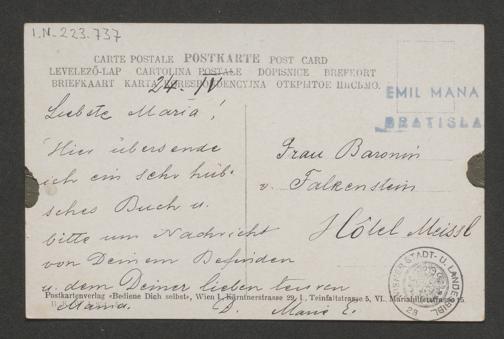 I.N. 223.737
CARTE POSTALE POSTKARTE POST CARD
LEVELEZŐ-LAP CARTOLINA POSTALE DOPISNICE BREFKORT
BRIEFKAART KARTA KORESPONDENCYJNA ОТКРЫТОЕ ПИСЬМО.
24. IV
EMIL MANA
BRATISLA
Liebste Maria!
Hier übersende
ich ein sehr hüb-
sches Buch u.
bitte um Nachricht
von Deinem Befinden
u. dem Deiner lieben teuren
Mama.
D. Marie E.
Frau Baronin
v. Falkenstein
Hôtel Meissl
Postkartenverlag «Bediene Dich selbst», Wien I., Kärntnerstrasse 29, I., Teinfaltstrasse 5, VI., Mariahilferstrasse 15.
STADT- U. LANDESBIBL.